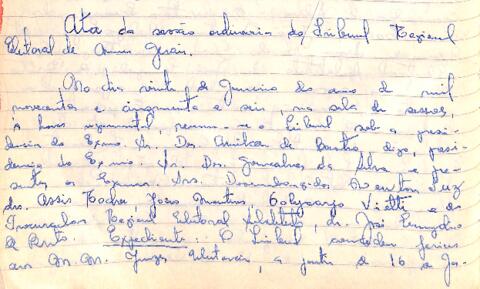 Ata da sessão ordinaria do Tribunal Regional
Eleitoral de Minas Gerais.
Aos dias vinte de Janeiro do ano de mil
novecentos e cincoenta e seis, na sala de sessões,
à hora regimental, reuniu-se o Tribunal sob a presi-
dencia do Exmo. Sr. Des. Amilcar de Castro, digo, presi-
dencia do Exmo. Sr. Des. Gonçalves da Silva e pre-
sentes os Exmos. Srs. Desembargador Newton Luz
drs. Assis Rocha, João Martins, e o
Procurador Regional Eleitoral Substituto, dr. José
Pinto. Expediente: O Tribunal concedeu ferias
aos M.M. Juizes Eleitorais, a partir de 16 de Ja-